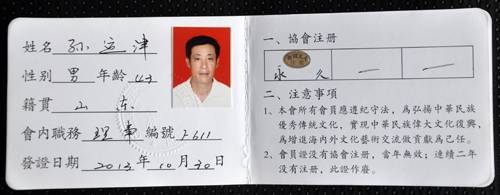 姓名 孙运津
性别 男 年龄 43
籍貫 山东
會内職務 理事 編號 J-611
發證日期 2013年10月30日
一、協會注册
永 久
二、注意事項
1、本會所有會員應遵紀守法，爲弘揚中華民族
優秀傳統文化，實現中華民族偉大文化復興，
爲增進海内外文化藝術交流做貢獻爲己任。
2、會員證没有協會注册，當年無效；連續二年
没有注册，此證作廢。